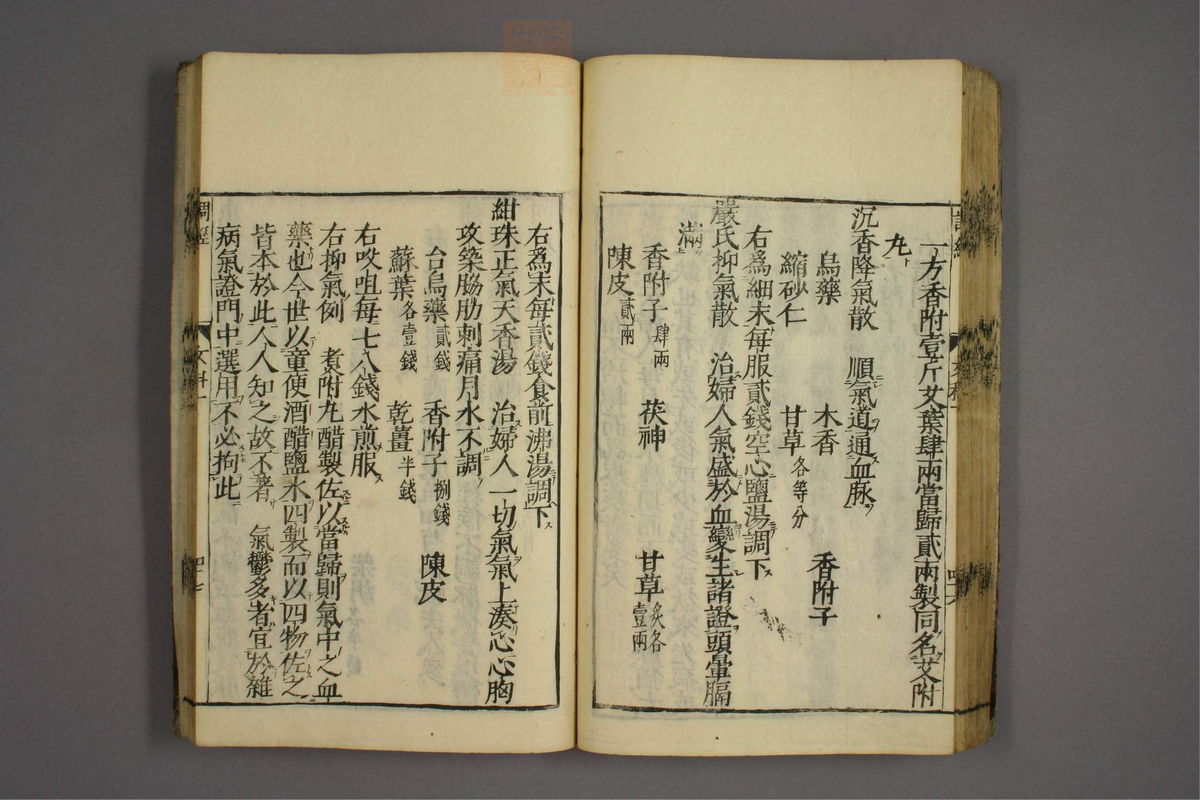 一方香附壹斤艾葉肆兩當歸貳兩製同名艾附
丸
沉香降氣散　順氣道通血脉
烏藥　木香　香附子
縮砂仁　甘草各等分
右爲細末每服貳錢空心鹽湯調下
嚴氏抑氣散　治婦人氣盛於血變生諸證頭暈膈
滿
香附子肆兩　茯神　甘草炙各壹兩
陳皮貳兩
右爲末每貳錢食前沸湯調下
紺珠正氣天香湯　治婦人一切氣氣上湊心心胸
攻築脇肋刺痛月水不調
台烏藥貳錢　香附子捌錢　陳皮
蘇葉各壹錢　乾薑半錢
右㕮咀每七八錢水煎服
右抑氣例　煮附丸醋製佐以當歸則氣中之血
藥也今世以童便酒醋鹽水四製而以四物佐之
皆本於此人人知之故不著　氣鬱多者宜於雜
病氣證門中選用不必拘此
調經
女科一
四十七